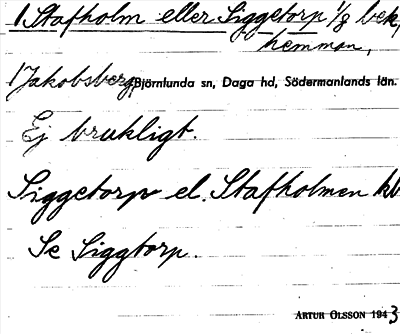 1 Stafholm eller Siggetorp 1/8 bek,
hemman,
1 Jakobsberg, Björnlunda sn, Daga hd, Södermanlands län.
Ej brukligt.
Siggetorp el. Stafholmen
Se Siggtorp.
ARTUR OLSSON 1943